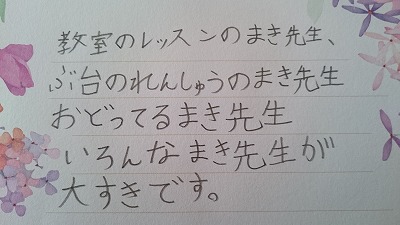 教室のレッスンのまき先生、
ぶ台のれんしゅうのまき先生
おどってるまき先生
いろんなまき先生が
大すきです。